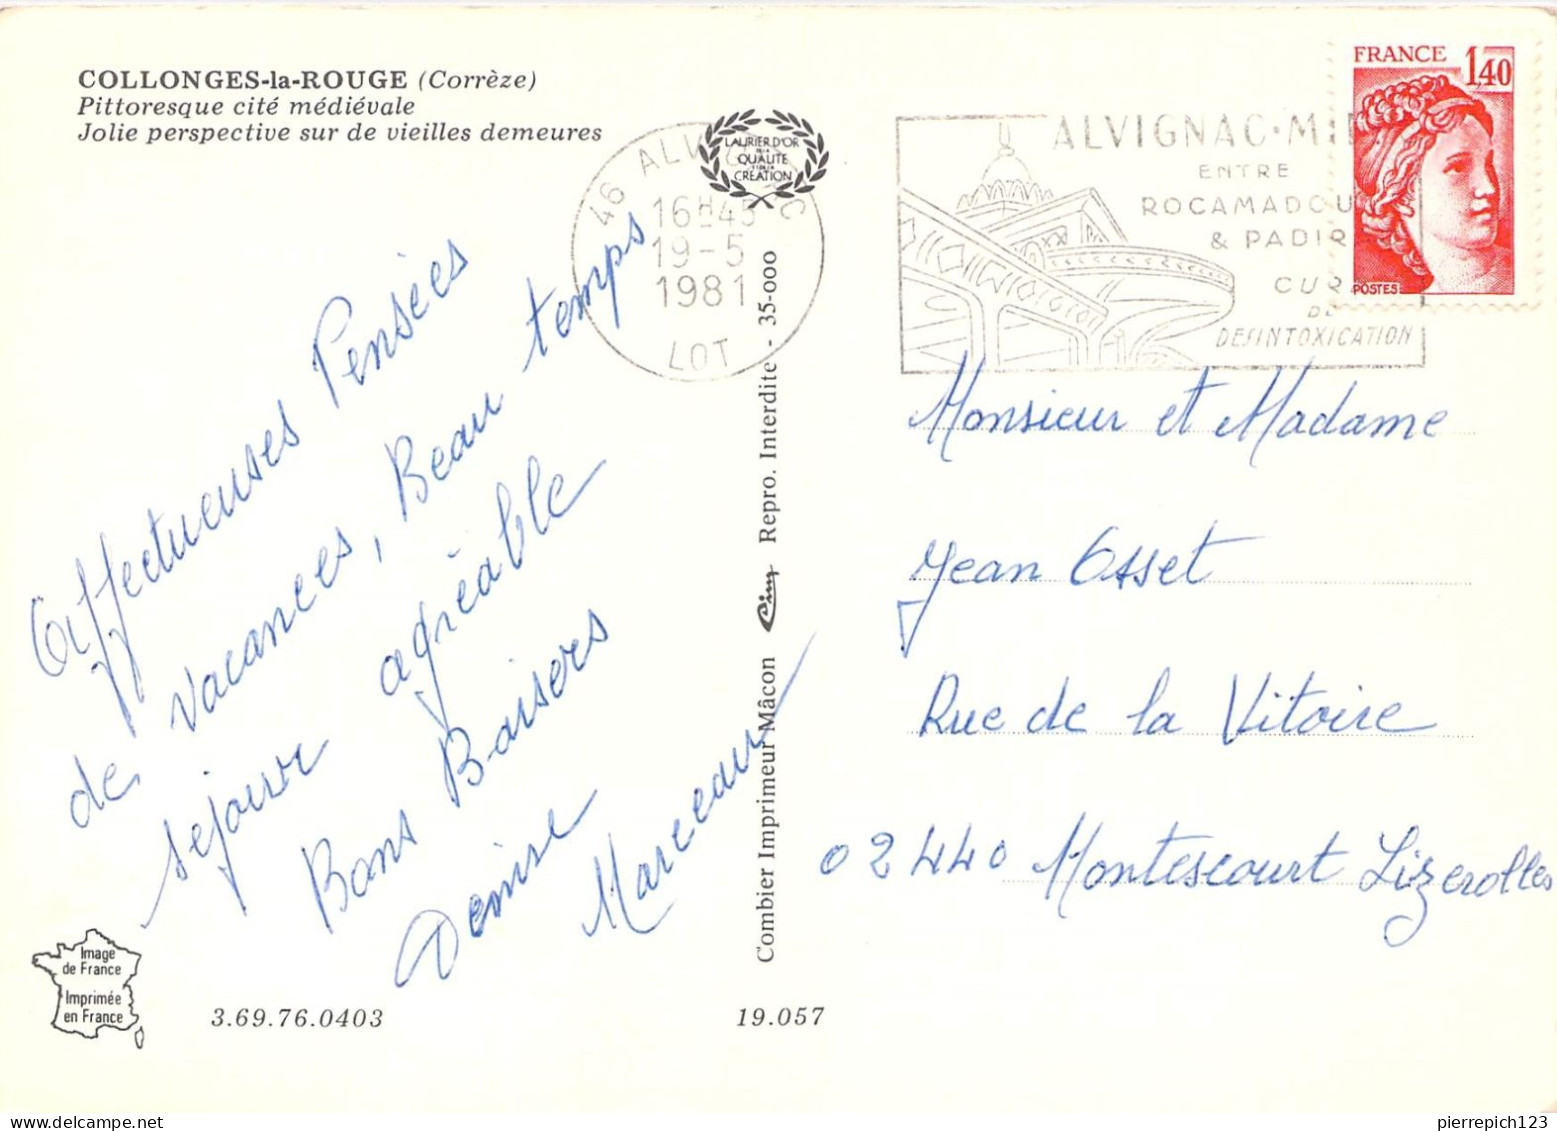 COLLONGES-la-ROUGE (Corrèze)
Pittoresque cité médiévale
Jolie perspective sur de vieilles demeures
LAURIER D'OR
DE LA
QUALITE
CREATION
46 ALV C
16H45
19-5
1981
LOT
ALVIGNAC·MI
ENTRE
ROCAMADOU
& PADIR
CUR
DE
DESINTOXICATION
FRANCE 1,40
POSTES
Affectueuses Pensées
de vacances, Beau temps
séjour agréable
Bons Baisers
Denise
Marceau
Combier Imprimeur Mâcon Cim Repro. Interdite - 35-000
Monsieur et Madame
Jean Osset
Rue de la Vitoire
02440 Montescourt Lizerolles
Image
de France
Imprimée
en France
3.69.76.0403
19.057
pierrepich123